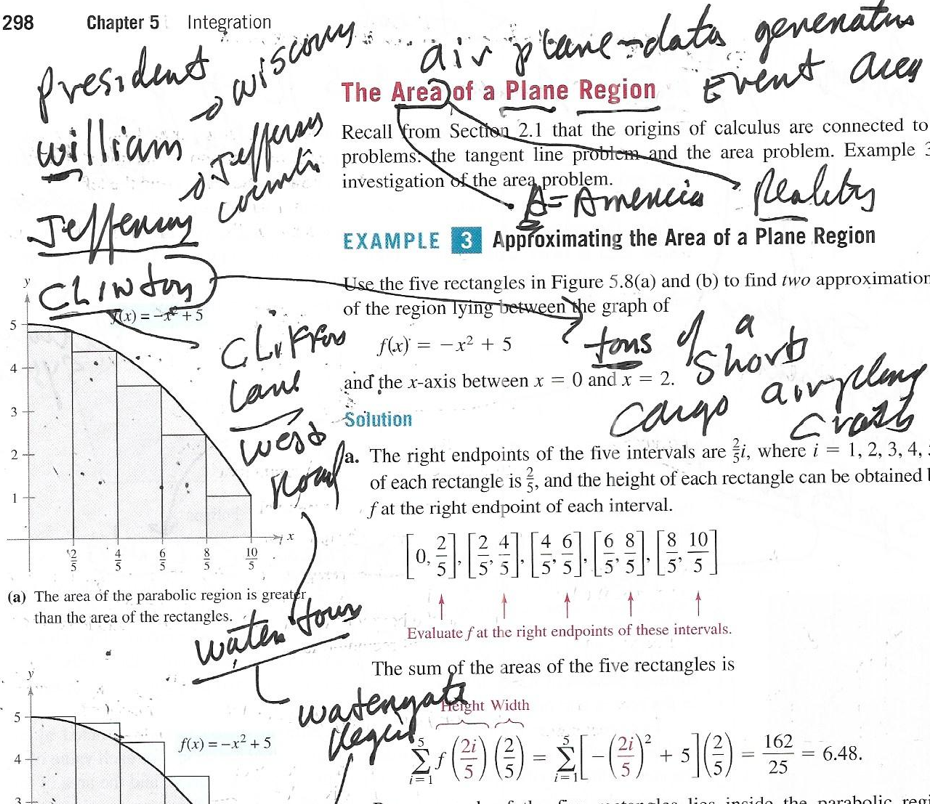 298 Chapter 5 Integration
President
wiscons
William
Jefferson
Jefferson
counti
CLINTON
airplane = data generation
Event Area
The Area of a Plane Region
Recall from Section 2.1 that the origins of calculus are connected to
problems: the tangent line problem and the area problem. Example 3
investigation of the area problem.
A = America Reality
EXAMPLE 3 Approximating the Area of a Plane Region
Use the five rectangles in Figure 5.8(a) and (b) to find two approximation
of the region lying between the graph of
f(x) = −x² + 5
and the x-axis between x = 0 and x = 2.
tons of a
short
cargo airplane
crash
Solution
a. The right endpoints of the five intervals are 2/5 i, where i = 1, 2, 3, 4,
of each rectangle is 2/5, and the height of each rectangle can be obtained
f at the right endpoint of each interval.
[0, 2/5], [2/5, 4/5], [4/5, 6/5], [6/5, 8/5], [8/5, 10/5]
Evaluate f at the right endpoints of these intervals.
The sum of the areas of the five rectangles is
Height Width
∑_{i=1}^{5} f(2i/5)(2/5) = ∑_{i=1}^{5} [−(2i/5)² + 5](2/5) = 162/25 = 6.48.
y
f(x) = −x² + 5
5
4
3
2
1
2/5 4/5 6/5 8/5 10/5
x
Lane
West
Road
(a) The area of the parabolic region is greater
than the area of the rectangles.
water tower
watergate
y
5
f(x) = −x² + 5
4
3